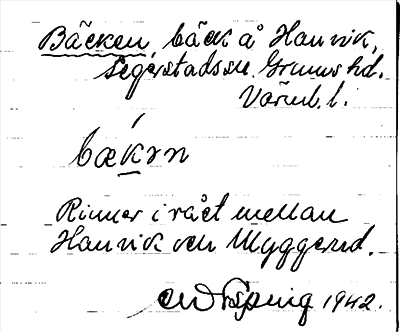 Bäcken, bäck å Hanvik,
Segerstads sn Grums hd.
Värml. l.
bækɘn
Rinner i rået mellan
Hanvik och Myggerud.
1942.